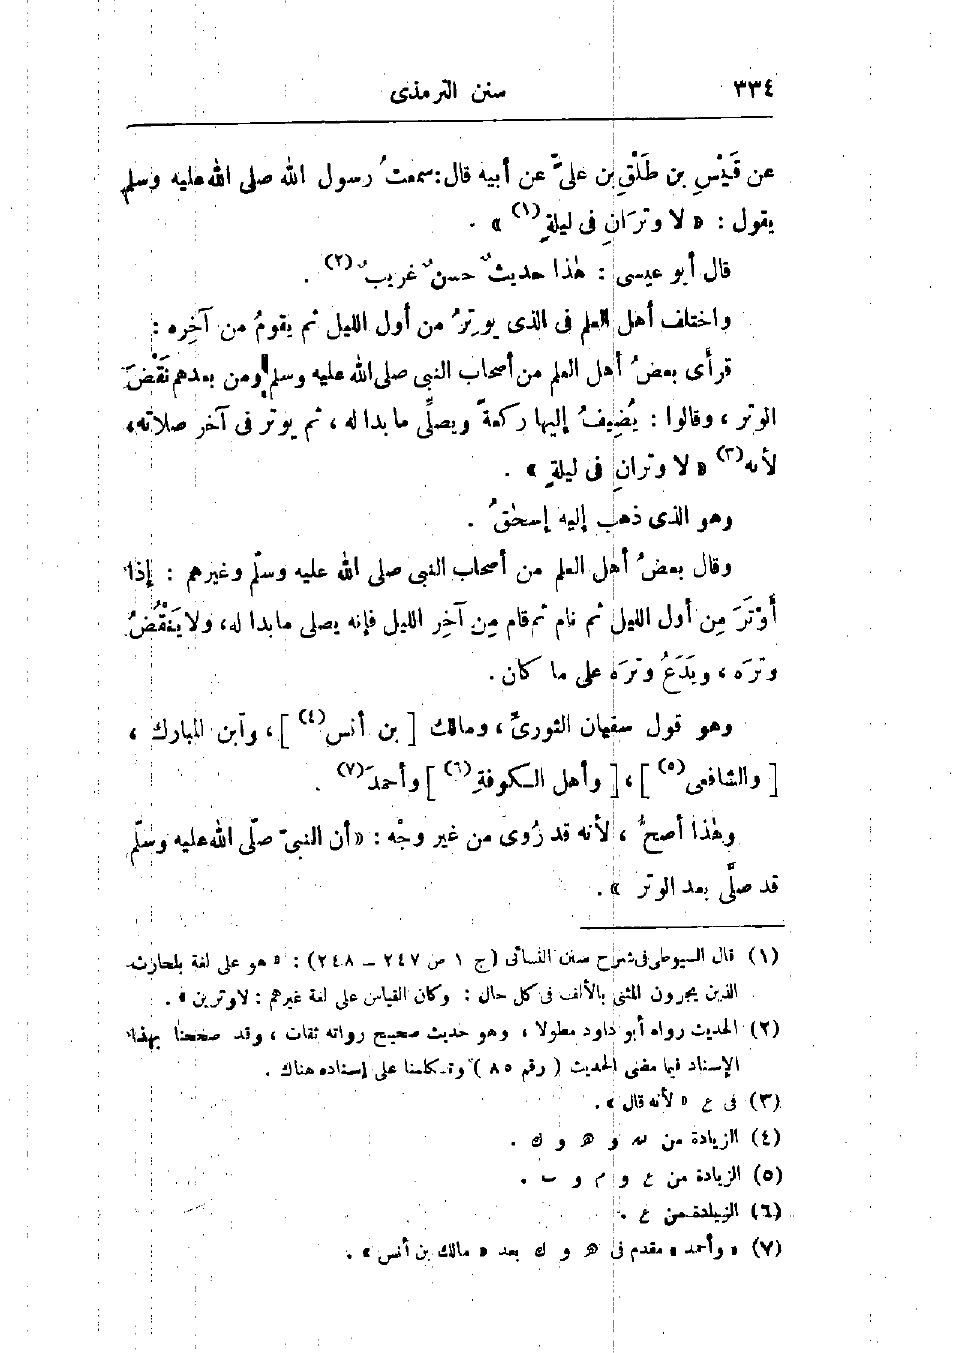 ٣٣٤ سنن الترمذى
عن قَيْسِ بن طَلْقِ بن علىٍّ عن أبيه قال: سمعتُ رسول الله صلى الله عليه وسلم
يقول : « لا وتْرَانِ فى ليلةٍ (١) » .
قال أبو عيسى : هٰذا حديثٌ حسنٌ غريبٌ (٢) .
واختلف أهل العلم فى الذى يوتِرُ من أول الليل ثم يقومُ من آخِره :
فرأى بعضُ أهل العلم من أصحاب النبى صلى الله عليه وسلم ومن بعدهم نَقْضَ
الوتر ، وقالوا : يُضِيفُ إليها ركعةً ويصلِّى ما بدا له ، ثم يوتر فى آخر صلاته ،
لأنه (٣) « لا وترانِ فى ليلةٍ » .
وهو الذى ذهب إليه إسحٰقُ .
وقال بعضُ أهل العلم من أصحاب النبى صلى الله عليه وسلّم وغيرهم : إذا
أَوْتَرَ مِن أول الليل ثم نام ثم قام مِن آخِر الليل فإنه يصلى ما بدا له ، ولا يَنْقُضُ
وترَه ، ويَدَعُ وترَه على ما كان .
وهو قول سفيان الثورىِّ ، ومالك [ بن أنس (٤) ] ، وٱبن المبارك ،
[ والشافعى (٥) ] ، [ وأهل الكوفةِ (٦) ] وأحمدَ (٧) .
وهٰذا أصحُّ ، لأنه قد رُوى من غير وجْه : « أن النبىّ صلّى الله عليه وسلّم
قد صلَّى بعد الوتر » .
(١) قال السيوطى فى شرح سنن النسائى (ج ١ ص ٢٤٧ – ٢٤٨) : « هو على لغة بلحارث
الذين يجرون المثنى بالألف فى كل حال : وكان القياس على لغة غيرهم : لا وترين » .
(٢) الحديث رواه أبو داود مطولا ، وهو حديث صحيح رواته ثقات ، وقد صححنا بهذا
الإسناد فيما مضى الحديث ( رقم ٨٥ ) وتكلمنا على إسناده هناك .
(٣) فى ع « لأنه قال » .
(٤) الزيادة من نه و ه و ك .
(٥) الزيادة من ع و م و ب .
(٦) الزيادة من ع .
(٧) « وأحمد » مقدم فى ه و ك بعد « مالك بن أنس » .